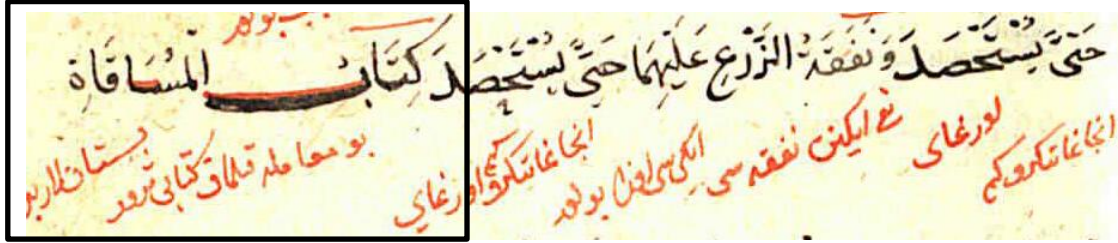 بولور
حَتَّى يُسْتَحْصَدَ وَنَفَقَةُ الزَّرْعِ عَلَيْهِمَا حَتَّى يُسْتَحْصَدَ كِتَابُ الْمُسَاقَاةِ
انجاغا تكروكم اورغای ايكن نفقه سی بولور انجاغا تكروكم اورغای بو معامله قلماق كتابی ترور بستانلار